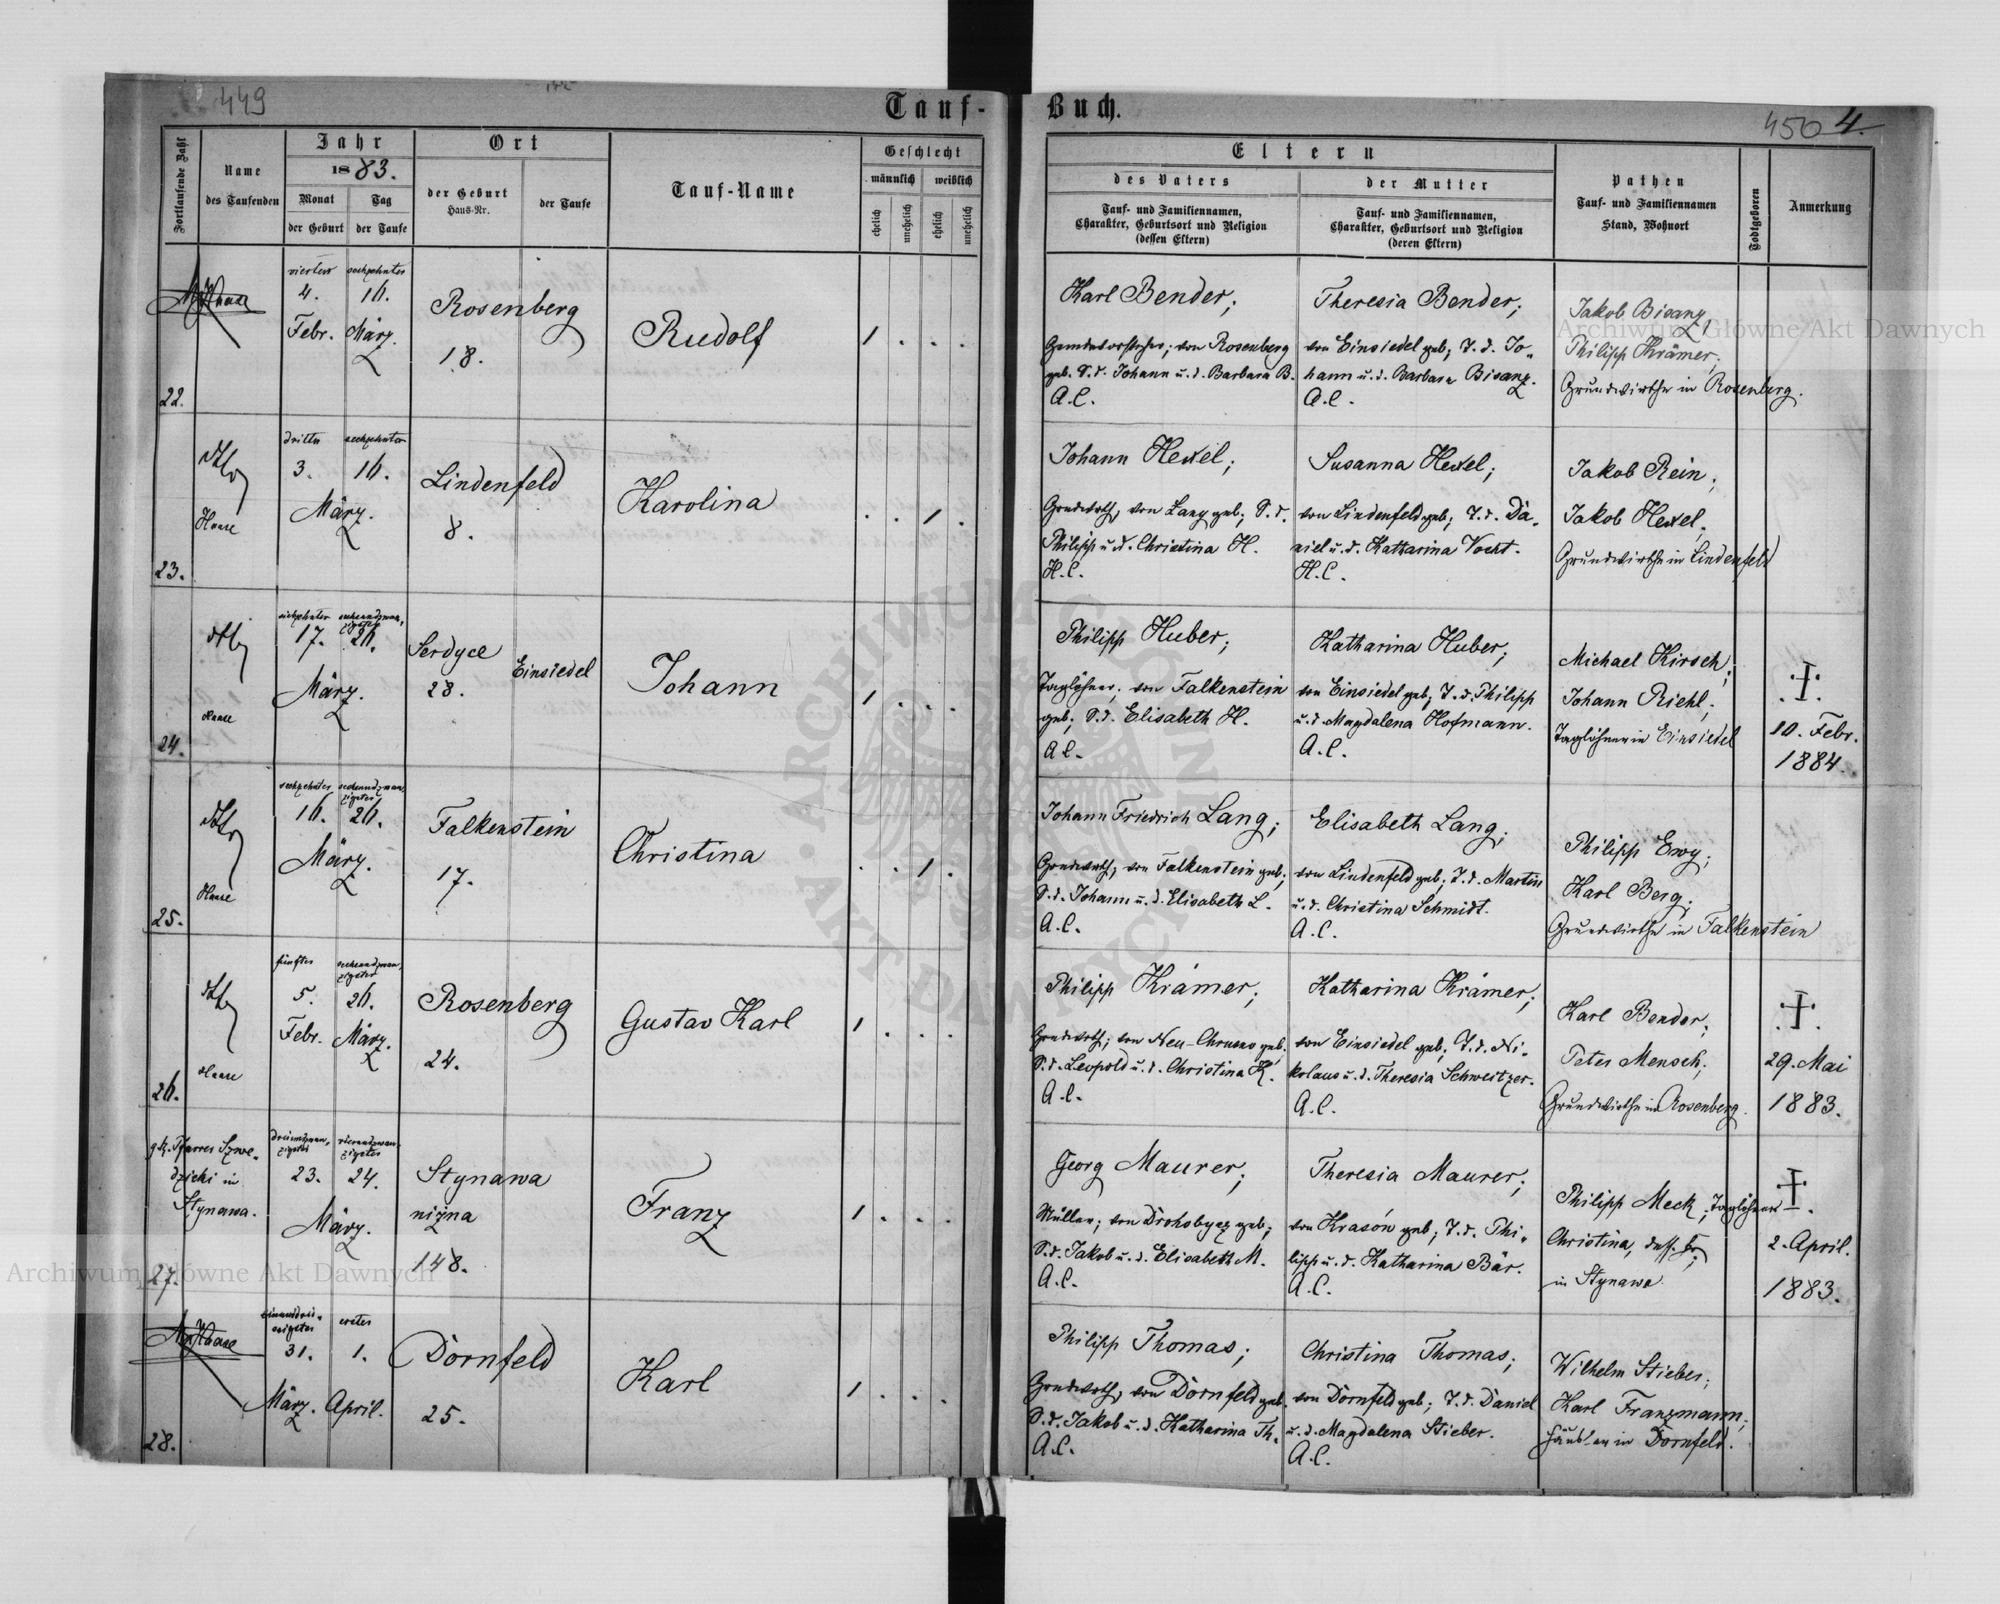 449
Tauf-
Buch.
450 4.
Fortlaufende Zahl
Name
des Taufenden
Jahr
1883.
Monat
Tag
der Geburt
der Taufe
Ort
der Geburt
Haus-Nr.
der Taufe
Tauf-Name
Geschlecht
männlich
weiblich
ehelich
unehelich
ehelich
unehelich
Eltern
des Vaters
Tauf- und Familiennamen,
Charakter, Geburtsort und Religion
(dessen Eltern)
der Mutter
Tauf- und Familiennamen,
Charakter, Geburtsort und Religion
(deren Eltern)
Pathen
Tauf- und Familiennamen
Stand, Wohnort
Todtgeboren
Anmerkung
22.
Haase
vierter
4.
Febr.
sechzehnter
16.
März.
Rosenberg
18.
Rudolf
1 . . .
Karl Bender;
von Rosenberg
geb. S. d. Johann u. d. Barbara B.
A.C.
Theresia Bender;
von Einsiedel geb; T. d. Jo-
hann u. d. Barbara Bisanz.
A.C.
Jakob Bisanz,
Philipp Krämer;
Grundwirthe in Rosenberg.
23.
Haase
dritter
3.
sechzehnter
16.
März.
Lindenfeld
8.
Karolina
. . 1 .
Johann Hexel;
Grundwrth, von Lany geb; S. d.
Philipp u. d. Christina H.
H.C.
Susanna Hexel;
von Lindenfeld geb; T. d. Da-
niel u. d. Katharina Vocht.
H.C.
Jakob Rein;
Jakob Hexel;
Grundwirthe in Lindenfeld
24.
Haase
17.
26.
März.
Serdyce
28.
Einsiedel
Johann
1 . . .
Philipp Huber;
Taglöhner; von Falkenstein
geb; S. d. Elisabeth H.
A.C.
Katharina Huber;
von Einsiedel geb; T. d. Philipp
u. d. Magdalena Hofmann.
A.C.
Michael Kirsch;
Johann Riehl;
Taglöhner in Einsiedel
10. Febr.
1884.
25.
Haase
sechzehnter
16.
sechsundzwan-
zigster
26.
März.
Falkenstein
17.
Christina
. . 1 .
Johann Friedrich Lang;
Grundwrth, von Falkenstein geb;
S. d. Johann u. d. Elisabeth L.
A.C.
Elisabeth Lang;
von Lindenfeld geb; T. d. Martin
u. d. Christina Schmidt.
A.C.
Philipp Ewy;
Karl Berg;
Grundwirthe in Falkenstein
26.
Haase
fünfter
5.
Febr.
sechsundzwan-
zigster
26.
März.
Rosenberg
24.
Gustav Karl
1 . . .
Philipp Krämer;
Grundwrth; von Neu-Chrusno geb;
S. d. Leopold u. d. Christina K.
A.C.
Katharina Krämer;
von Einsiedel geb; T. d. Ni-
kolaus u. d. Theresia Schweitzer.
A.C.
Karl Bender;
Peter Mensch;
Grundwirthe in Rosenberg.
29. Mai
1883.
27.
g.k. Pfarrer Szwe-
dzicki in
Stynawa.
dreiundzwan-
zigster
23.
vierundzwan-
zigster
24.
März.
Stynawa
niżna
148.
Franz
1 . . .
Georg Maurer;
Müller; von Drohobycz geb;
S. d. Jakob u. d. Elisabeth M.
A.C.
Theresia Maurer;
von Krasón geb; T. d. Phi-
lipp u. d. Katharina Bär.
A.C.
Philipp Meck; Taglöhner
Christina,
in Stynawa.
2. April.
1883.
28.
Haase
einunddrei-
ssigster
31.
März.
erster
1.
April.
Dornfeld
25.
Karl
1 . . .
Philipp Thomas;
Grundwrth, von Dornfeld geb.
S. d. Jakob u. d. Katharina Th.
A.C.
Christina Thomas;
von Dornfeld geb; T. d. Daniel
u. d. Magdalena Stieber.
A.C.
Wilhelm Stieber;
Karl Franzmann;
Häusler in Dornfeld.
Archiwum Główne Akt Dawnych
Archiwum Główne Akt Dawnych
ARCHIWUM GŁÓWNE AKT DAWNYCH